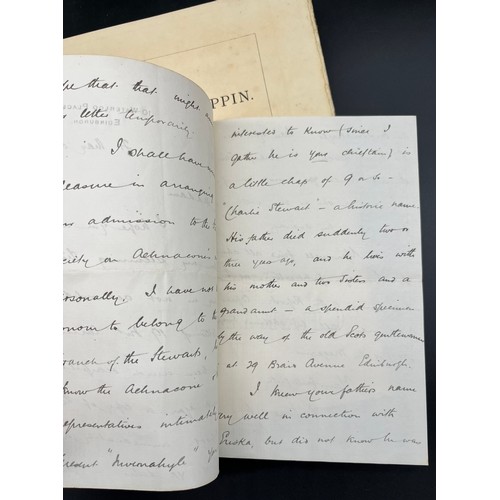 PPIN.
10 WATERLOO PLACE
EDINBURGH
pe that that might
letter temporarily.
I shall have
pleasure in
admission to the
ciety on Achnacone
personally. I have not
onour to belong to
branch of the Stewarts,
know the Achnacone
representatives intimately
present "Invernahyle"
interested to know (since I
gather he is your chieftain) is
a little chap of 9 or so -
"Charlie Stewart" - a historic name
His father died suddenly two or
three years ago, and he lives with
his mother and two sisters and a
grandaunt - a splendid specimen
by the way of the old Scots gentlewoman
at 29 Braid Avenue Edinburgh.
I knew your fathers name
very well in connection with
Eriska, but did not know he was